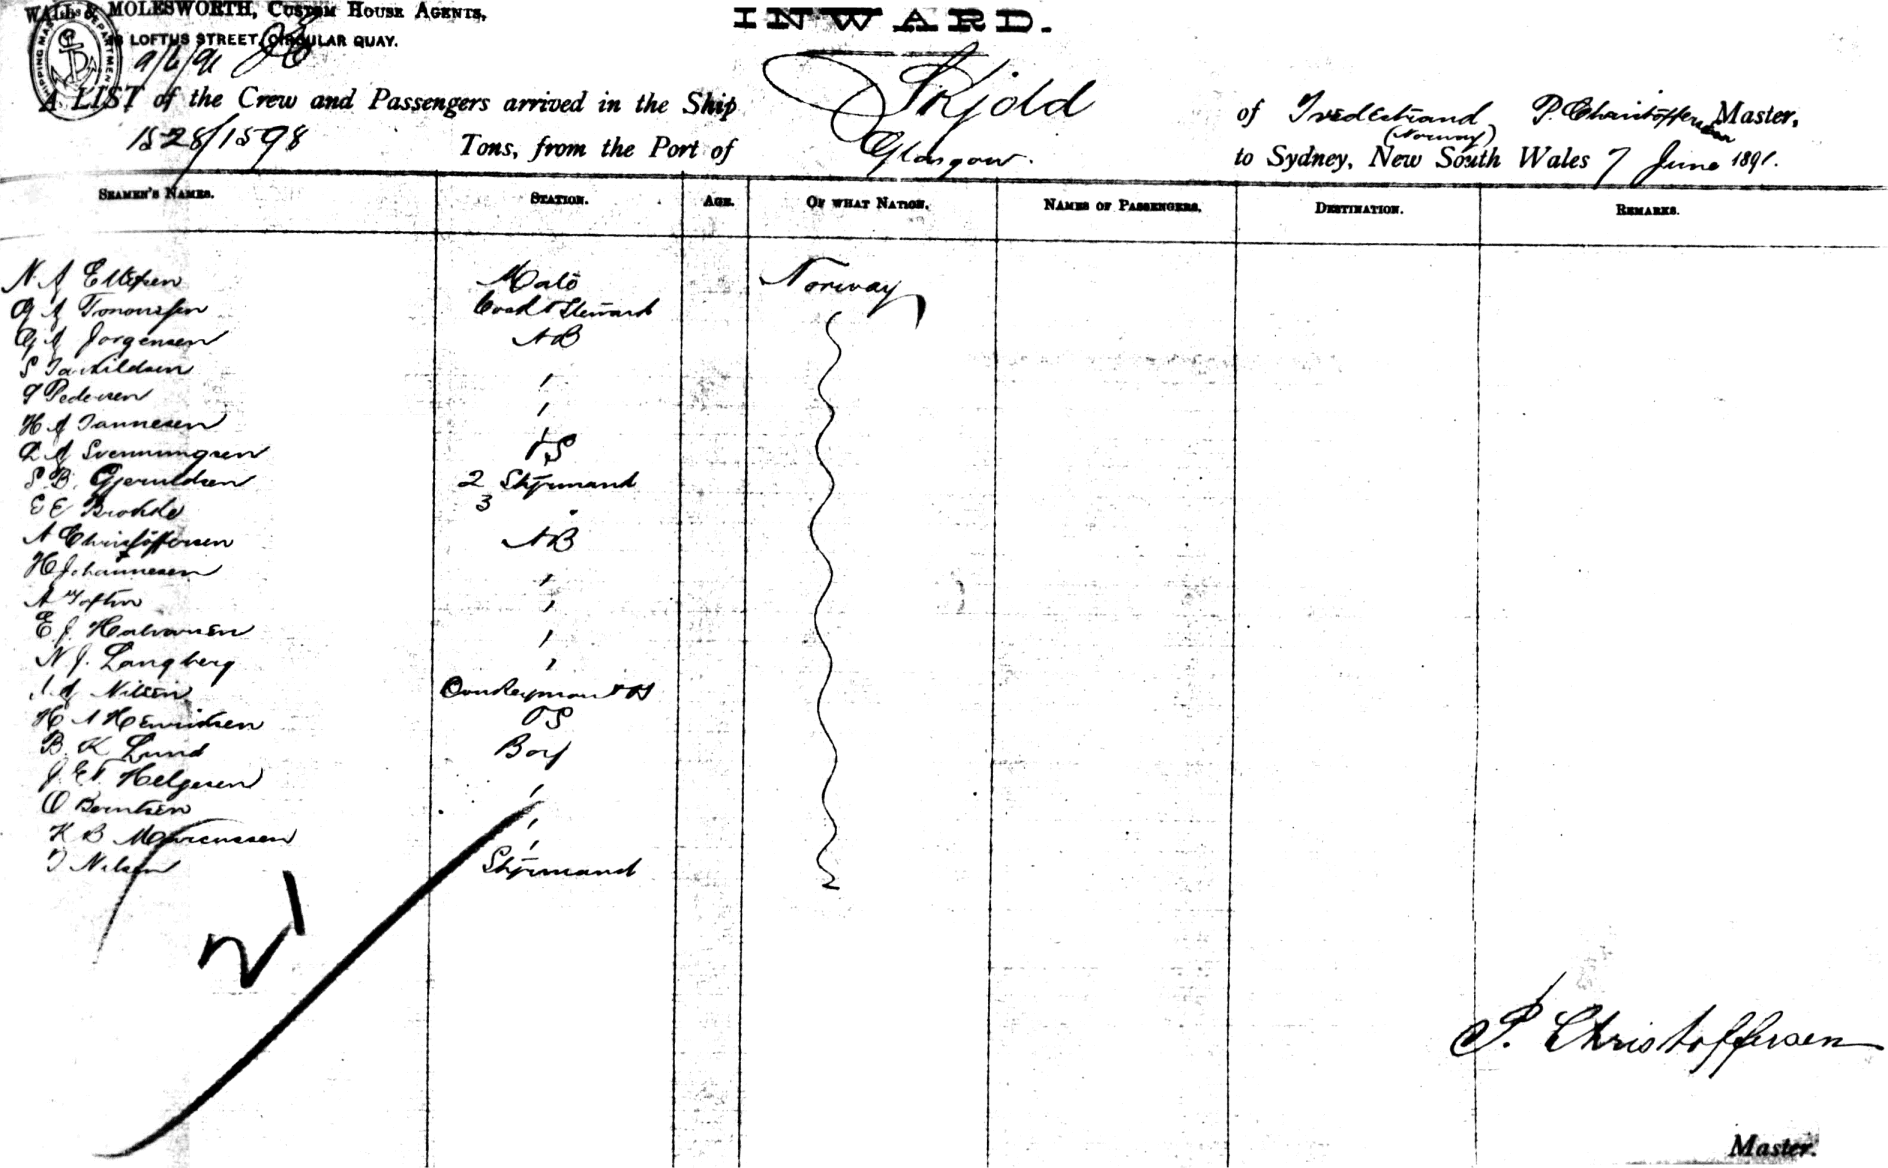 WALL & MOLESWORTH, CUSTOM HOUSE AGENTS,
LOFTUS STREET, CIRCULAR QUAY.
INWARD.
9/6/91
A LIST of the Crew and Passengers arrived in the Ship Skjold of Tvedestrand (Norway) P. Christoffersen Master,
1528/1598 Tons, from the Port of Glasgow. to Sydney, New South Wales 7 June 1891.
SEAMEN'S NAMES. STATION. AGE. OF WHAT NATION. NAMES OF PASSENGERS. DESTINATION. REMARKS.
N A Ellefsen Mate Norway
Cook & Steward
G A Jorgensen AB
S "
S Pedersen "
H A "
A Svennungsen OS
S. B. Gjeruldsen 2 Styrmand
E E 3 "
A Christoffersen AB
H Johannesen "
A "
E J. Halvorsen "
N J. Langberg "
A Nilsen Donkeyman &
H A Henriksen OS
B. K Lund Boy
Helgesen "
O Berntsen "
K B Marcussen "
T Nilsen Styrmand
21
P. Christoffersen
Master.